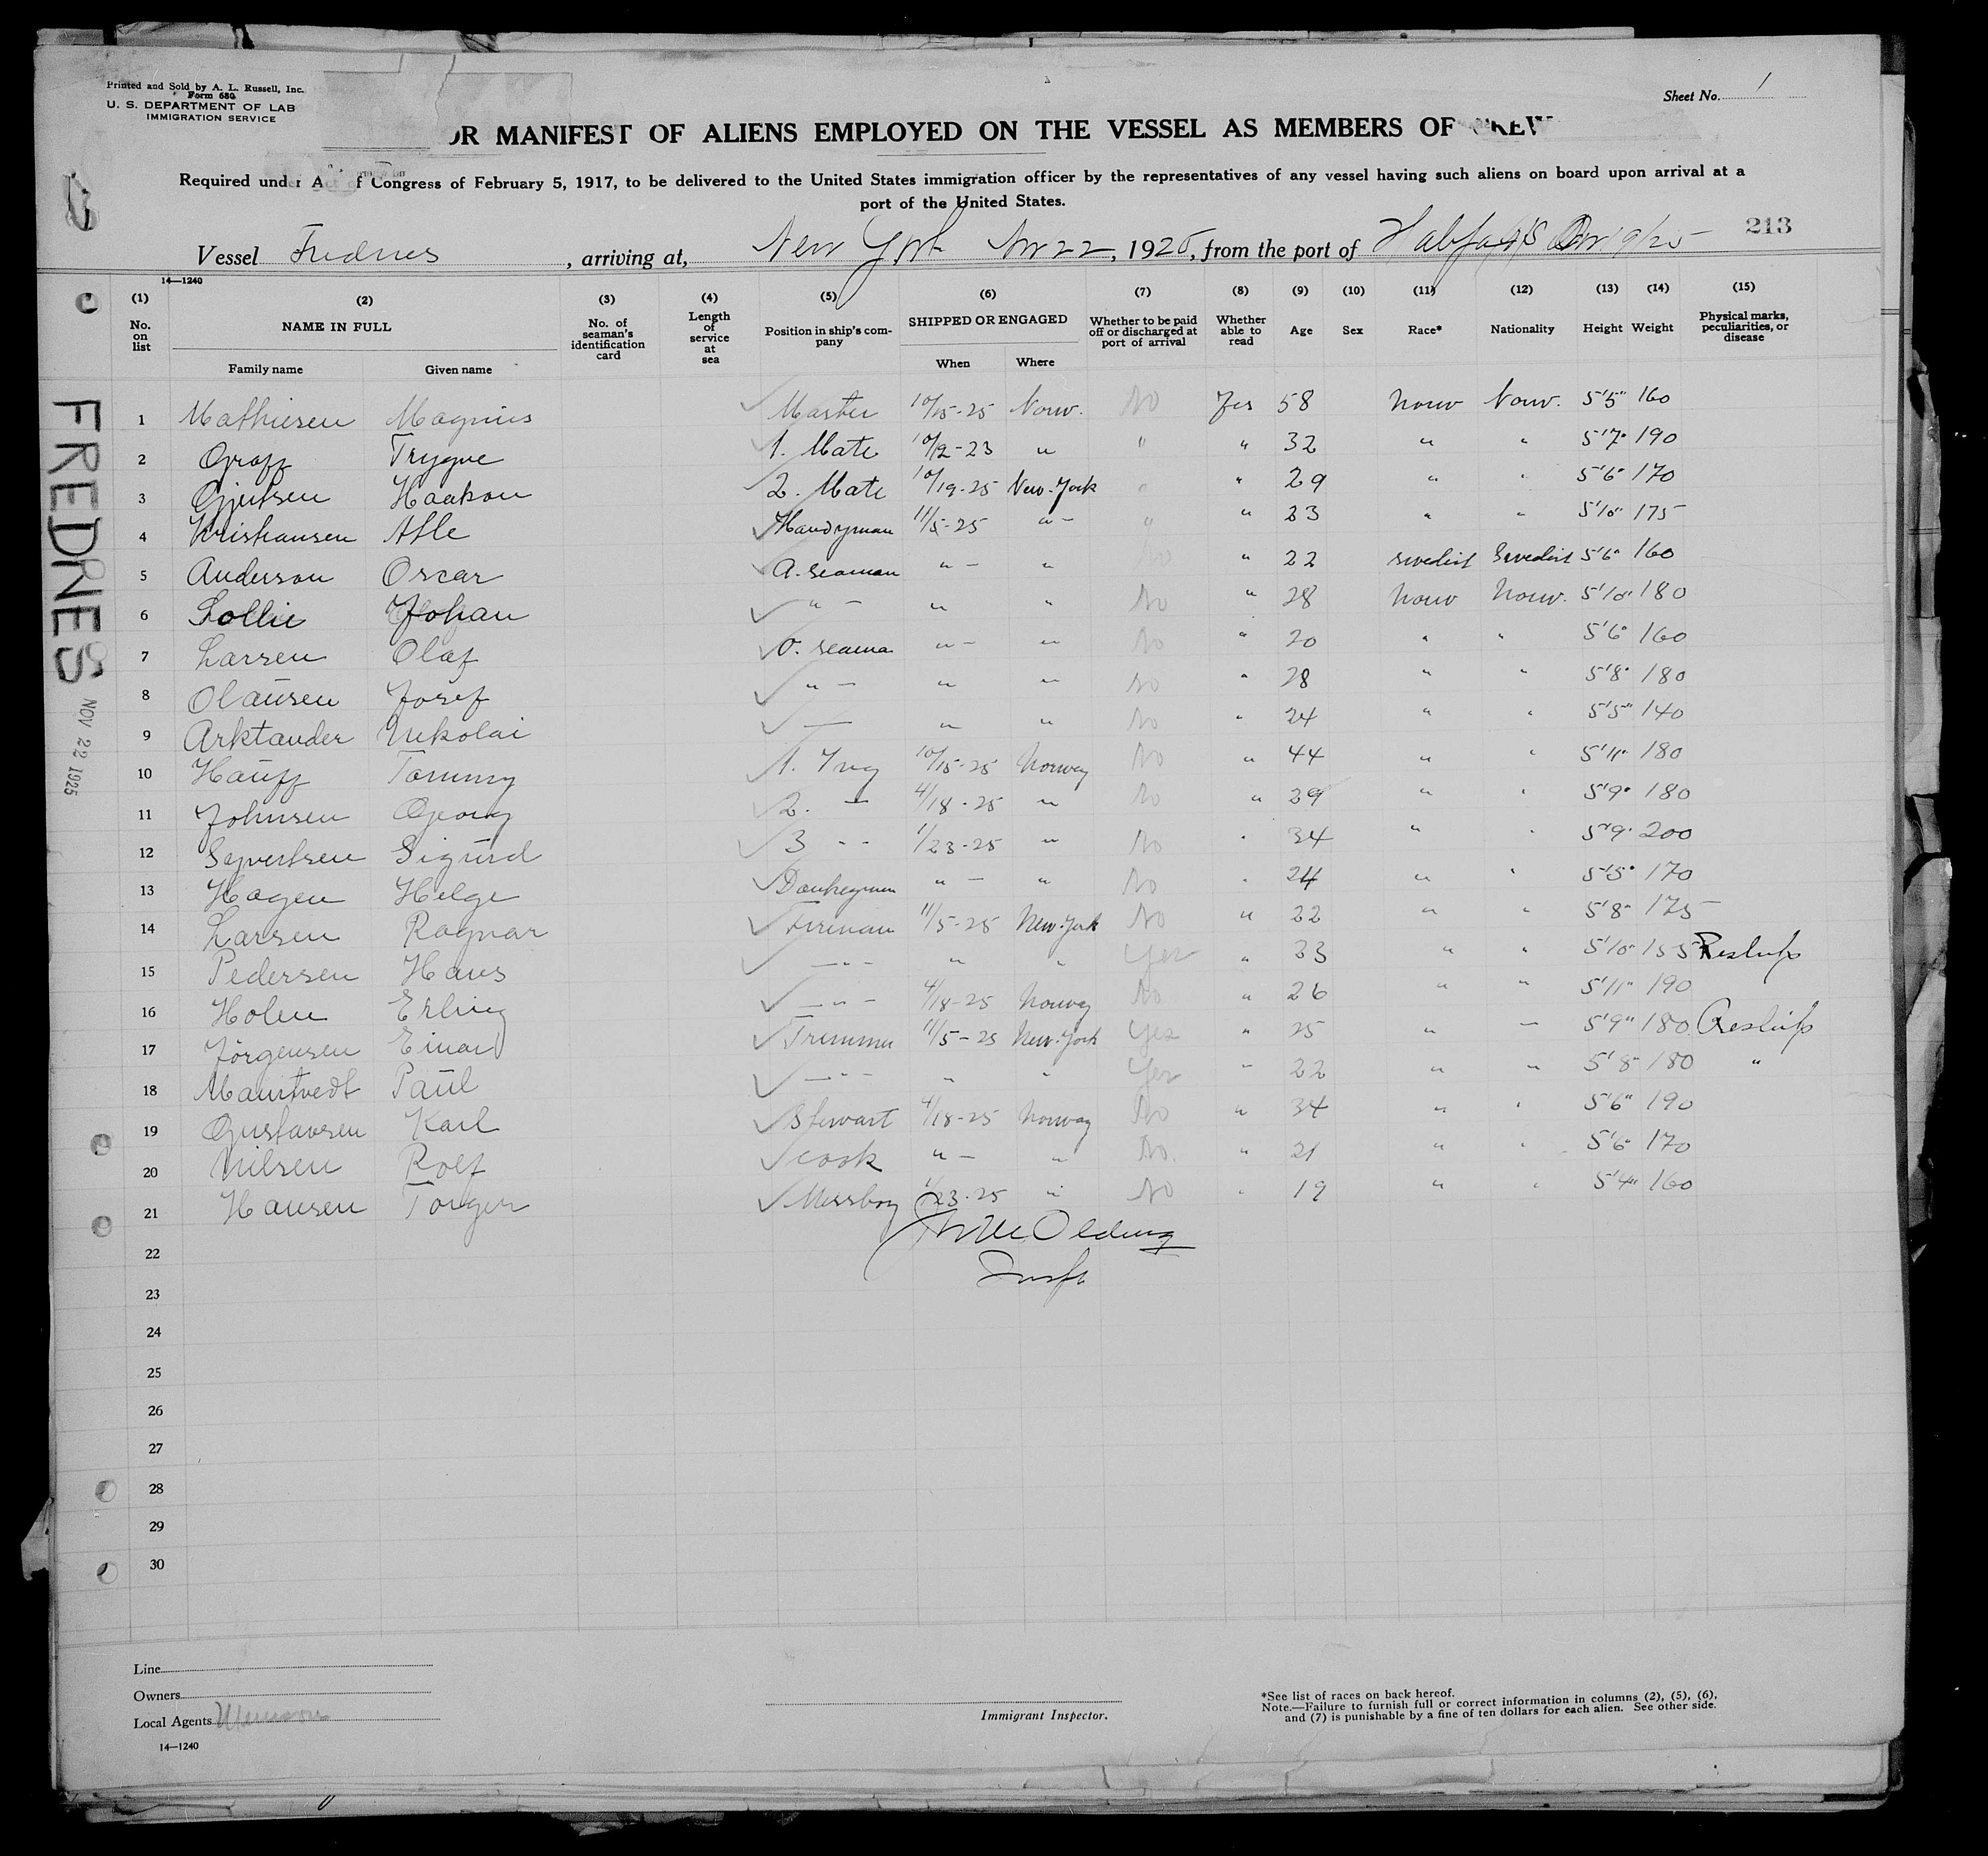 Printed and Sold by A. L. Russell, Inc.
Form 680
U. S. DEPARTMENT OF LAB
IMMIGRATION SERVICE
Sheet No. 1
OR MANIFEST OF ALIENS EMPLOYED ON THE VESSEL AS MEMBERS OF CREW
Required under Act of Congress of February 5, 1917, to be delivered to the United States immigration officer by the representatives of any vessel having such aliens on board upon arrival at a
port of the United States.
213
Vessel Frednes, arriving at, New York Nov 22, 1925, from the port of Halifax NS Nov 19/25
14—1240
(1) (2) (3) (4) (5) (6) (7) (8) (9) (10) (11) (12) (13) (14) (15)
No. on list NAME IN FULL No. of seaman's identification card Length of service at sea Position in ship's company SHIPPED OR ENGAGED Whether to be paid off or discharged at port of arrival Whether able to read Age Sex Race* Nationality Height Weight Physical marks, peculiarities, or disease
Family name Given name When Where
1 Mathiesen Magnus Master 10/15-25 Norw. No Yes 58 Norw Norw. 5'5" 160
2 Graff Trygve 1. Mate 10/12-23 " " " 32 " " 5'7" 190
3 Gjertsen Haakon 2. Mate 10/19-25 New-York " " 29 " " 5'6" 170
4 Kristiansen Atle Handyman 11/5-25 "- " " 23 " " 5'10" 175
5 Anderson Oscar A. seaman "- " No " 22 swedish Swedish 5'6" 160
6 Sollie Johan "- " " No " 28 Norw Norw. 5'10" 180
7 Larsen Olaf O. seama "- " No " 20 " " 5'6" 160
8 Olausen Josef "- " " No " 28 " " 5'8" 180
9 Arktander Nikolai — " " No " 24 " " 5'5" 140
10 Hauff Tommy 1. Ing 10/15-25 Norway No " 44 " " 5'11" 180
11 Johnsen Georg 2. — 4/18-25 " No " 29 " " 5'9" 180
12 Sejvertsen Sigurd 3 -- 1/23-25 " No " 34 " " 5'9" 200
13 Hagen Helge Donkeyman "- " No " 24 " " 5'5" 170
14 Larsen Ragnar Fireman 11/5-25 New-York No " 22 " " 5'8" 175
15 Pedersen Hans -"- " " Yes " 33 " " 5'10" 155 Reship
16 Holen Erling -"- 4/18-25 Norway No " 26 " " 5'11" 190
17 Jörgensen Einar Trimmer 11/5-25 New-York Yes " 25 " — 5'9" 180 Reship
18 Paul -"- " " Yes " 22 " " 5'8" 180 "
19 Gustavsen Karl Stewart 4/18-25 Norway No " 34 " " 5'6" 190
20 Nilsen Rolf cook "- " No. " 21 " " 5'6" 170
21 Hansen Torger Messboy 1/23-25 " No " 19 " " 5'4" 160
22
Insp
23
24
25
26
27
28
29
30
FREDNES
NOV 22 1925
Line
Owners
Local Agents Munson
14—1240
Immigrant Inspector.
*See list of races on back hereof.
Note.—Failure to furnish full or correct information in columns (2), (5), (6),
and (7) is punishable by a fine of ten dollars for each alien. See other side.